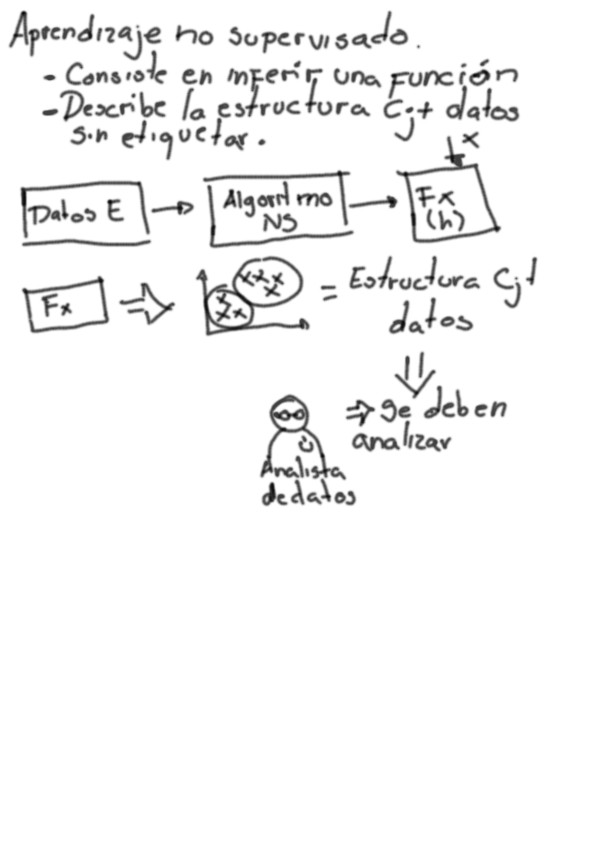 Aprendizaje no supervisado.
- Consiste en inferir una función
- Describe la estructura Cjt datos
sin etiquetar.
x
Datos E
Algoritmo
NS
Fx
(h)
Fx
x x x
x
x
x x
= Estructura Cjt
datos
⇒ se deben
analizar
Analista
de datos